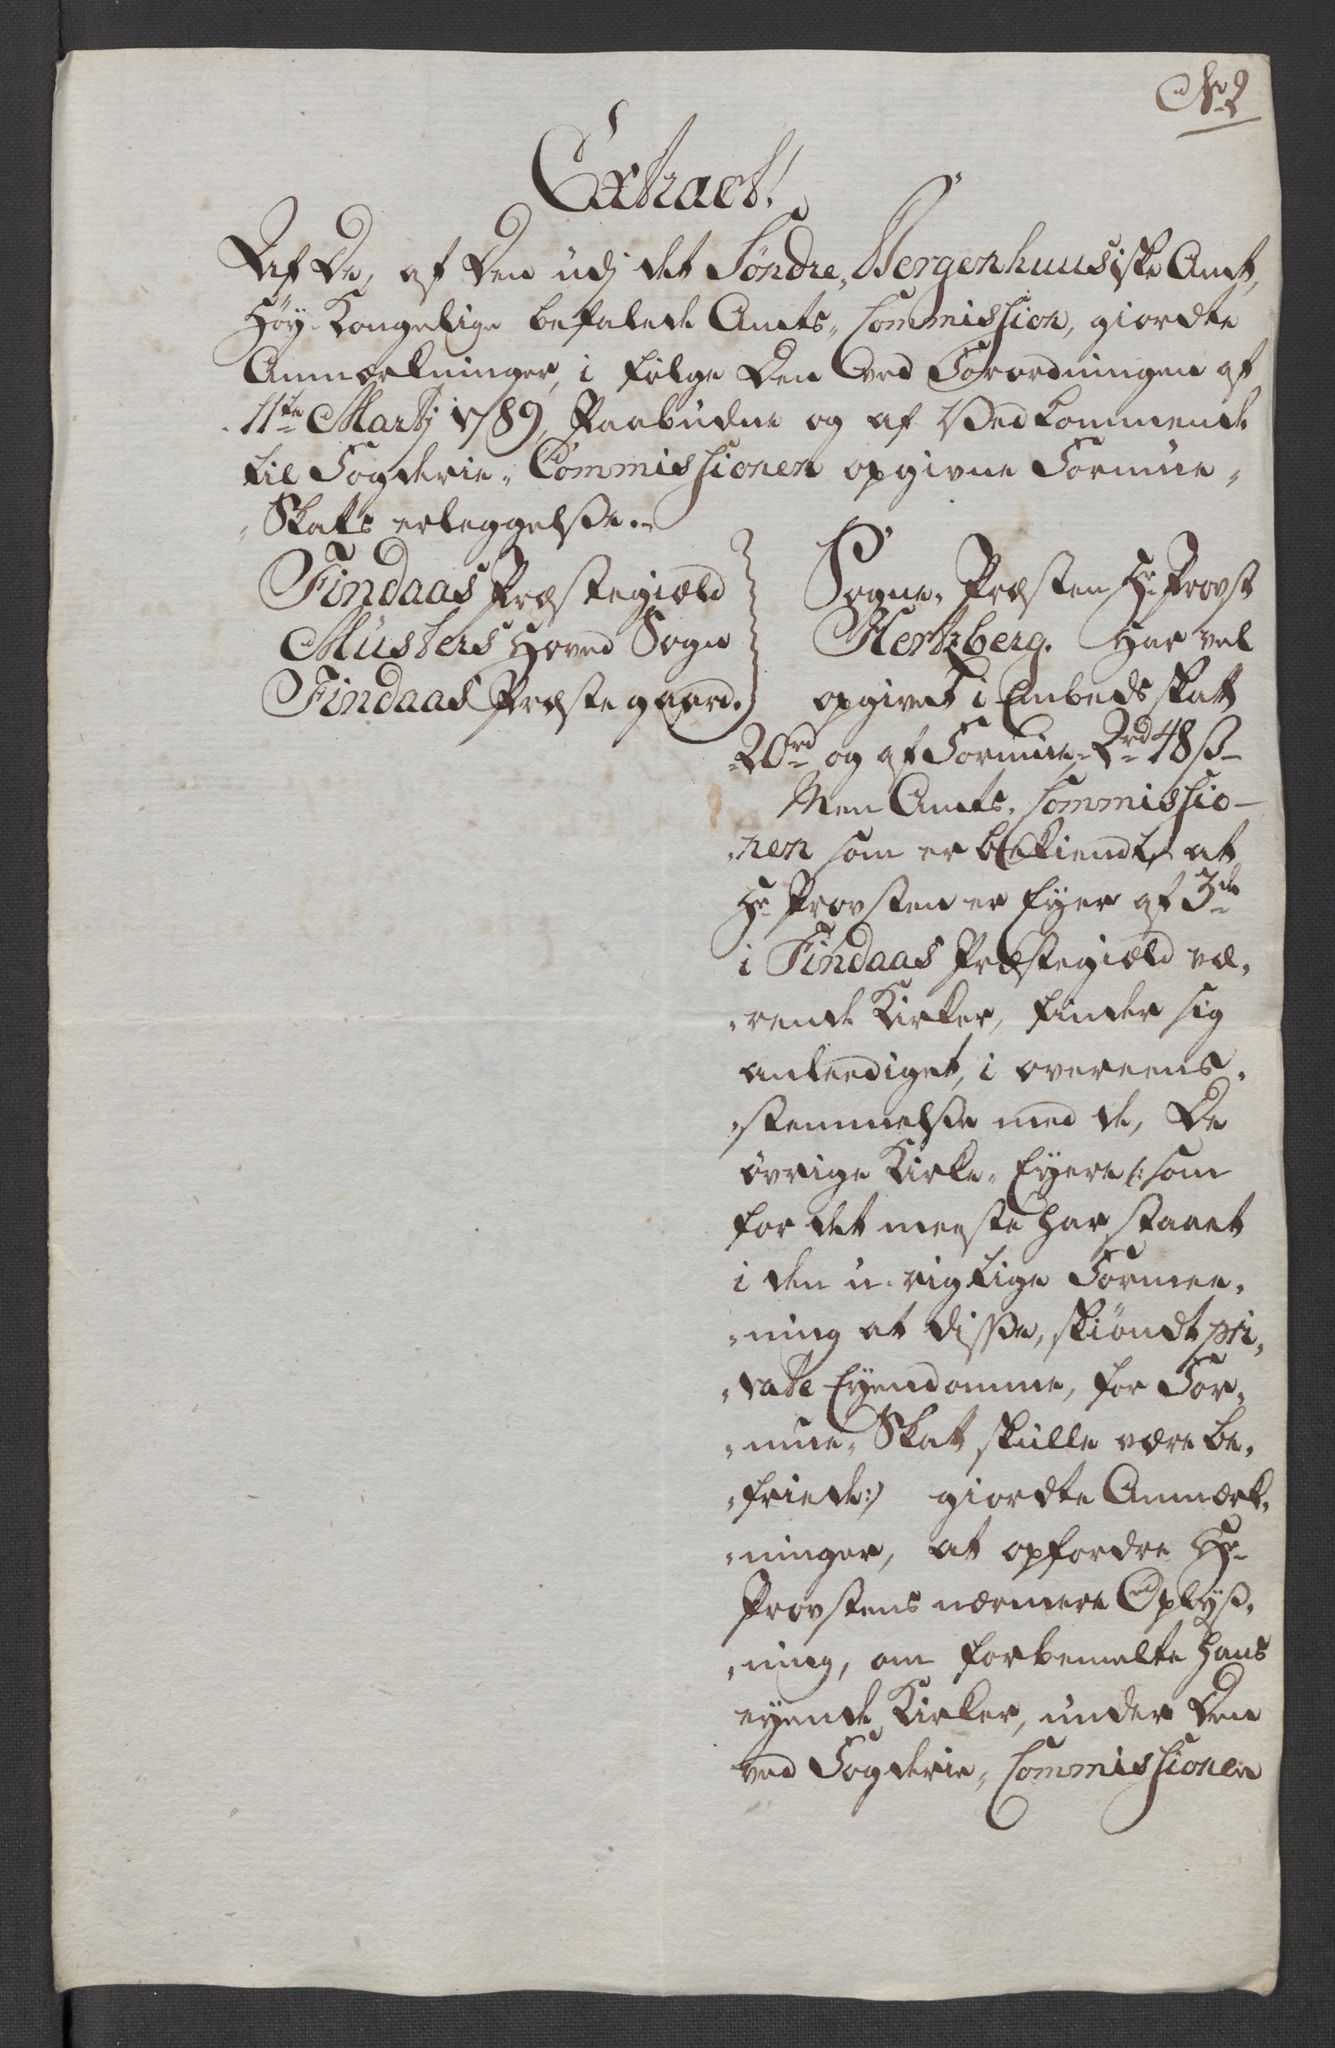 No 2
Extract!
Af De, af Den udj det Söndre, Bergenhuusiske Amt,
Höy-Kongelige befalede Amts, Commission, giordte
Anmærkninger, i fölge Den ved Forordningen af
11te Martj 1789, Paabudne og af Vedkommende
til Fogderie, Commissionen opgivne Formue,
,Skats erleggelsse.
Findaas Præstegiæld
Müsters Hoved Sogn
Findaas Præstegaard.
Sogne, Præsten Hr Provst
Hertzberg. Har vel
opgivet i Embeds skatt
20rd og af Formue, 2rd 48 ß
Men Amts, Commissio-
,nen som er bekiendt, at
Hr Provsten er Eyer af 3de
i Findaas Præstegiæld væ,
,rende Kirker, finder sig
anleediget, i overeens,
,stemmelsse med de, De
övrige Kirke, Eyere /: som
for det meeste har staaet
i den u-rigtige Formee,
,ning at disse, skiöndt pri,
,vate Eyendomme, for For,
,mue, Skat skulle være be,
,friede :/ giordte Anmærk,
,ninger, at opfordre Hr
Provstens nærmere Oplyß,
,ning, om forbemelte Hans
eyende Kirker, under Den
ved Fogderie, Commissionen